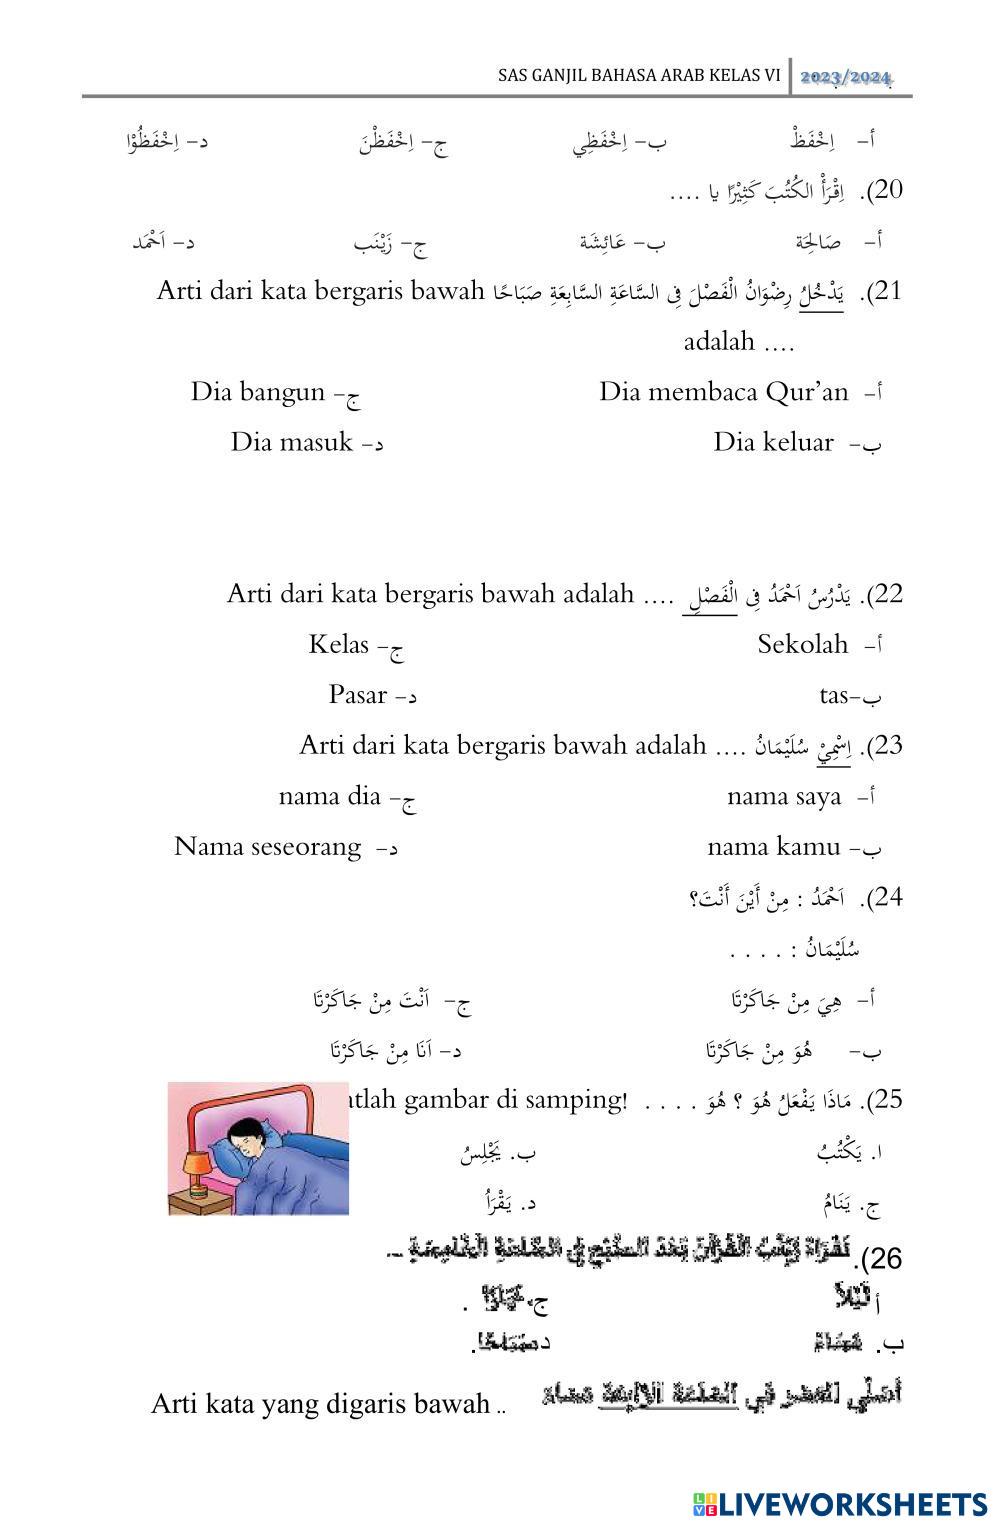 SAS GANJIL BAHASA ARAB KELAS VI 2023/2024
أ- اِحْفَظْ ب- اِحْفَظِي ج- اِحْفَظْنَ د- اِحْفَظُوْا
20). اِقْرَأْ الكُتُبَ كَثِيْرًا يا ....
أ- صَالِحَة ب- عَائِشَة ج- زَيْنَب د- اَحْمَد
21). يَدْخُلُ رِضْوَانُ الْفَصْلَ فِى السَّاعَةِ السَّابِعَةِ صَبَاحًا Arti dari kata bergaris bawah
adalah ....
أ- Dia membaca Qur’an ج- Dia bangun
ب- Dia keluar د- Dia masuk
22). يَدْرُسُ اَحْمَدُ فِى الْفَصْلِ Arti dari kata bergaris bawah adalah ....
أ- Sekolah ج- Kelas
ب-tas د- Pasar
23). اِسْمِيْ سُلَيْمَانُ Arti dari kata bergaris bawah adalah ....
أ- nama saya ج- nama dia
ب- nama kamu د- Nama seseorang
24). اَحْمَدُ : مِنْ أَيْنَ أَنْتَ؟
سُلَيْمَانُ : . . . .
أ- هِيَ مِنْ جَاكَرْتَا ج- اَنْتَ مِنْ جَاكَرْتَا
ب- هُوَ مِنْ جَاكَرْتَا د- اَنَا مِنْ جَاكَرْتَا
25). مَاذَا يَفْعَلُ هُوَ ؟ هُوَ . . . . atlah gambar di samping!
ا. يَكْتُبُ ب. يَجْلِسُ
ج. يَنَامُ د. يَقْرَأُ
26). الْقُرْآنَ بَعْدَ فِي السَّاعَةِ الْخَامِسَةِ ...
أ لَيْلاً ج. نَهَارًا .
ب. مَسَاءً د صَبَاحًا.
أصلّي العصر في الساعة الرابعة مساء Arti kata yang digaris bawah ..
LIVEWORKSHEETS